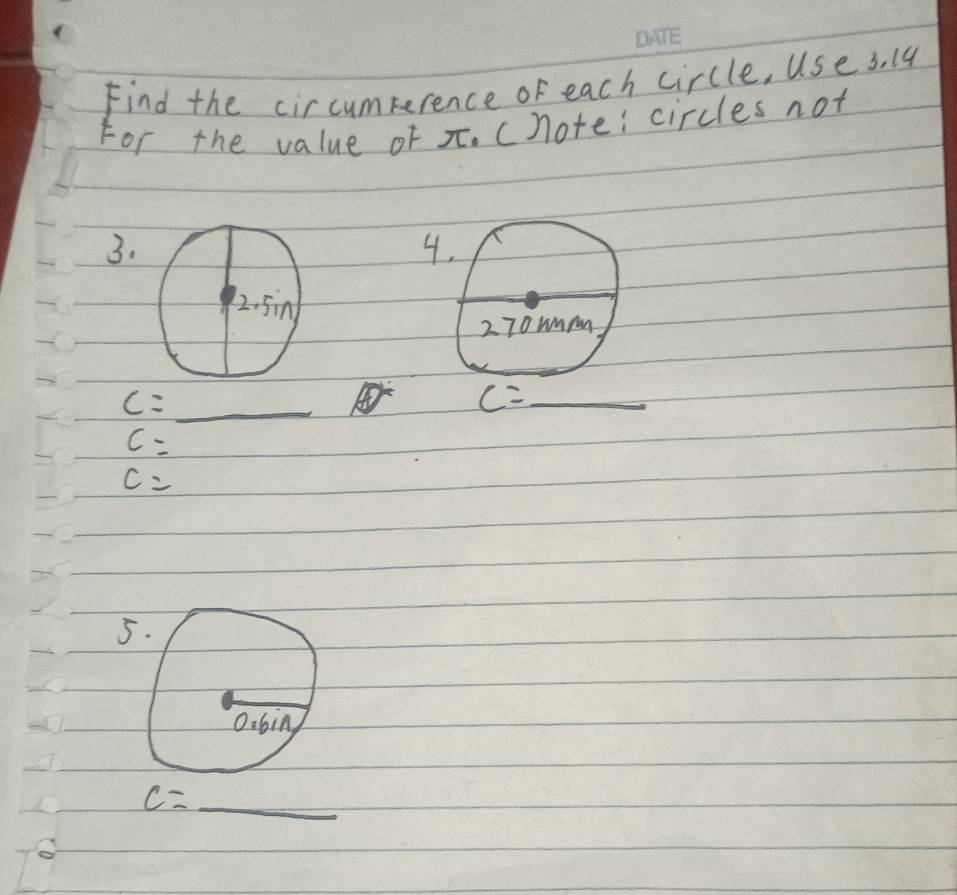 DATE
Find the circumference of each circle. Use 3.14
For the value of π. (Note: circles not
3.
2.5in
4.
270mm
C= ______ C= ______
C=
C=
5.
0.6in
C= ______